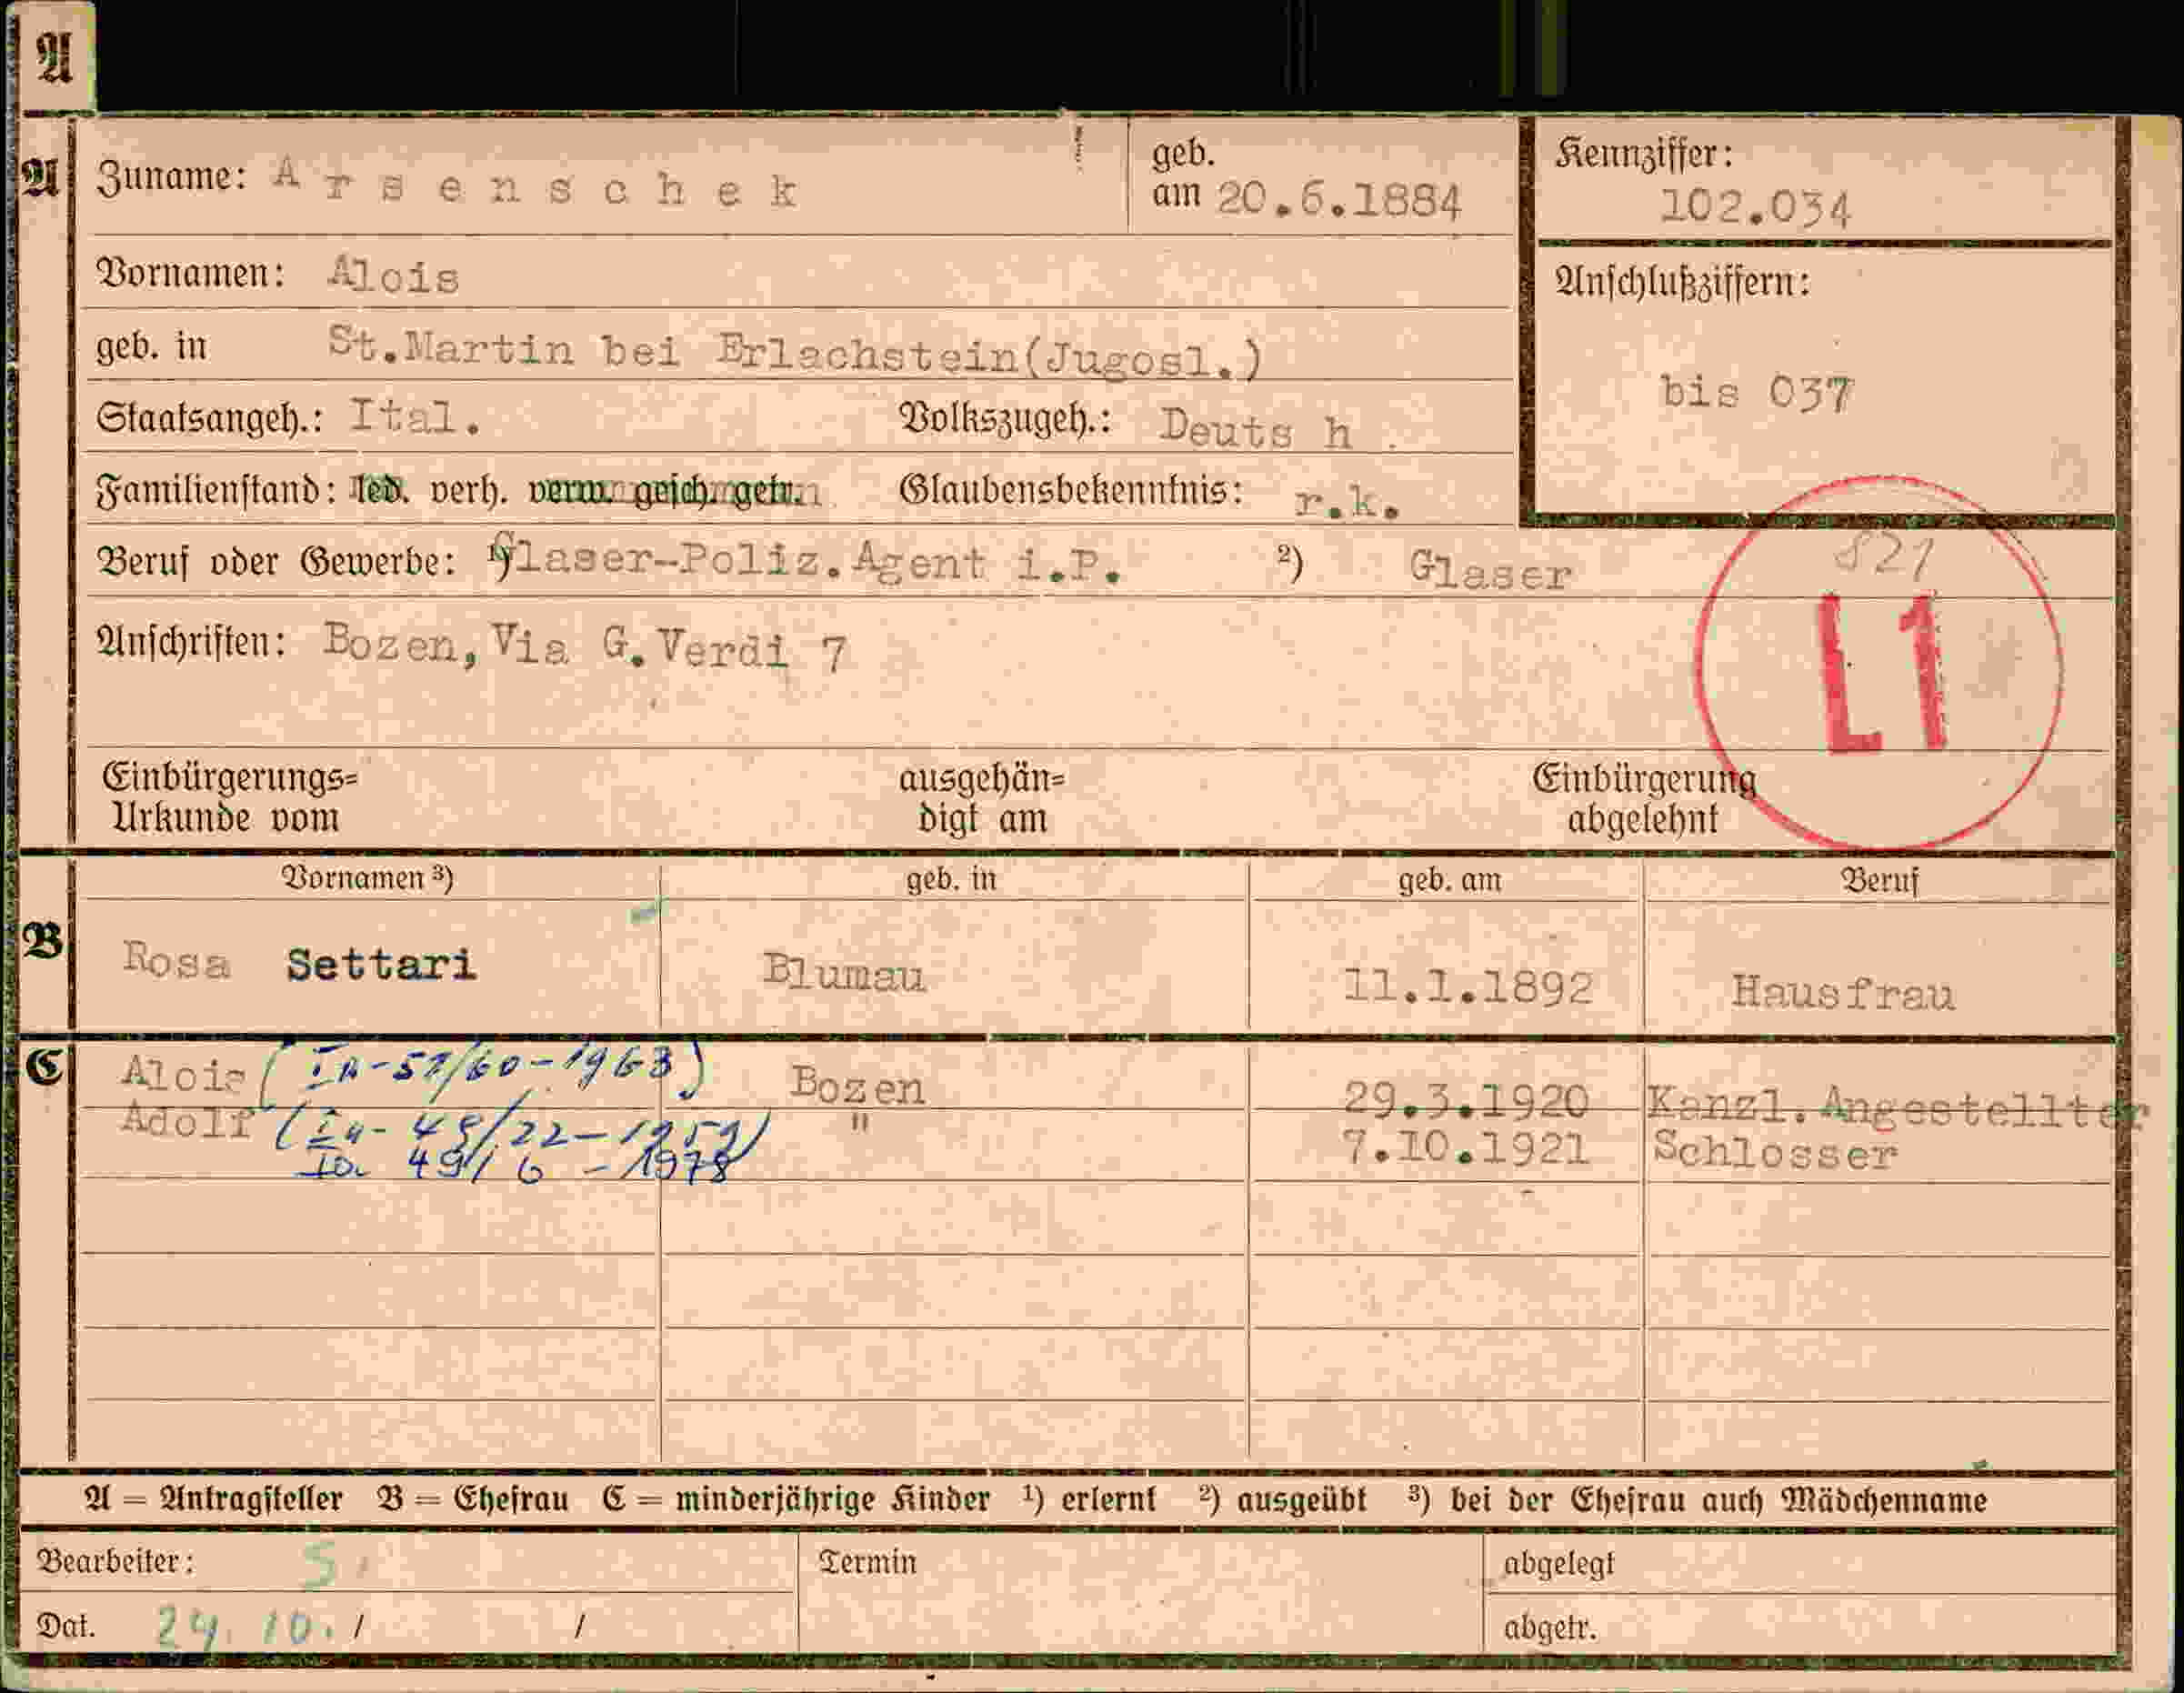 A
A Zuname: Arsenschek geb. am 20.6.1884 Kennziffer: 102.034
Vornamen: Alois Anschlußziffern:
geb. in St.Martin bei Erlachstein(Jugosl.) bis 037
Staatsangeh.: Ital. Volkszugeh.: Deuts h .
Familienstand: led. verh. verw. gesch. getr. Glaubensbekenntnis: r.k.
Beruf oder Gewerbe: 1) Glaser-Poliz.Agent i.P. 2) Glaser 821
Anschriften: Bozen, Via G.Verdi 7 L1
Einbürgerungs= ausgehän= Einbürgerung
Urkunde vom digt am abgelehnt
Vornamen 3) geb. in geb. am Beruf
B Rosa Settari Blumau 11.1.1892 Hausfrau
C Alois (IA-51/60-1963) Bozen 29.3.1920 Kanzl.Angestellter
Adolf " 7.10.1921 Schlosser
49/6 - 1978
A = Antragsteller B = Ehefrau C = minderjährige Kinder 1) erlernt 2) ausgeübt 3) bei der Ehefrau auch Mädchenname
Bearbeiter: S Termin abgelegt
Dat. 24.10. / / abgetr.